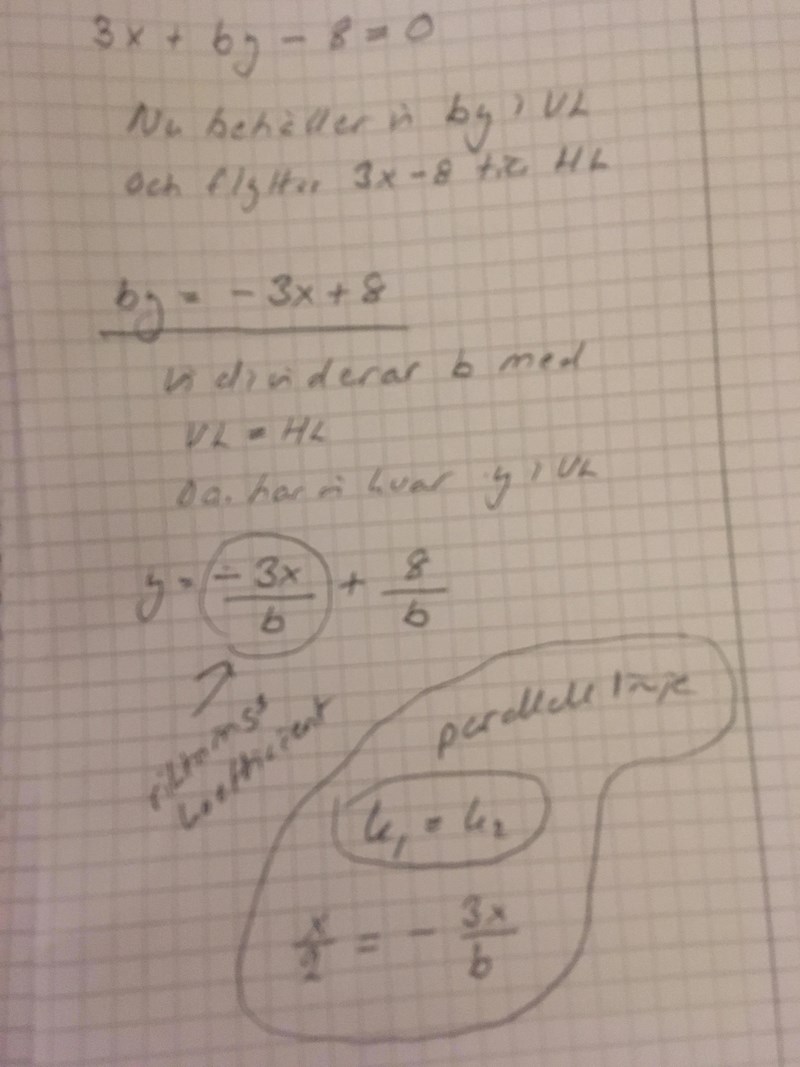 3x + by - 8 = 0
Nu behåller vi by i VL
och flyttar 3x - 8 till HL
by = - 3x + 8
vi dividerar b med
VL = HL
Då har vi kvar y i VL
y = - 3x/b + 8/b
riktnings
koefficient
parallell linje
k₁ = k₂
x/2 = - 3x/b